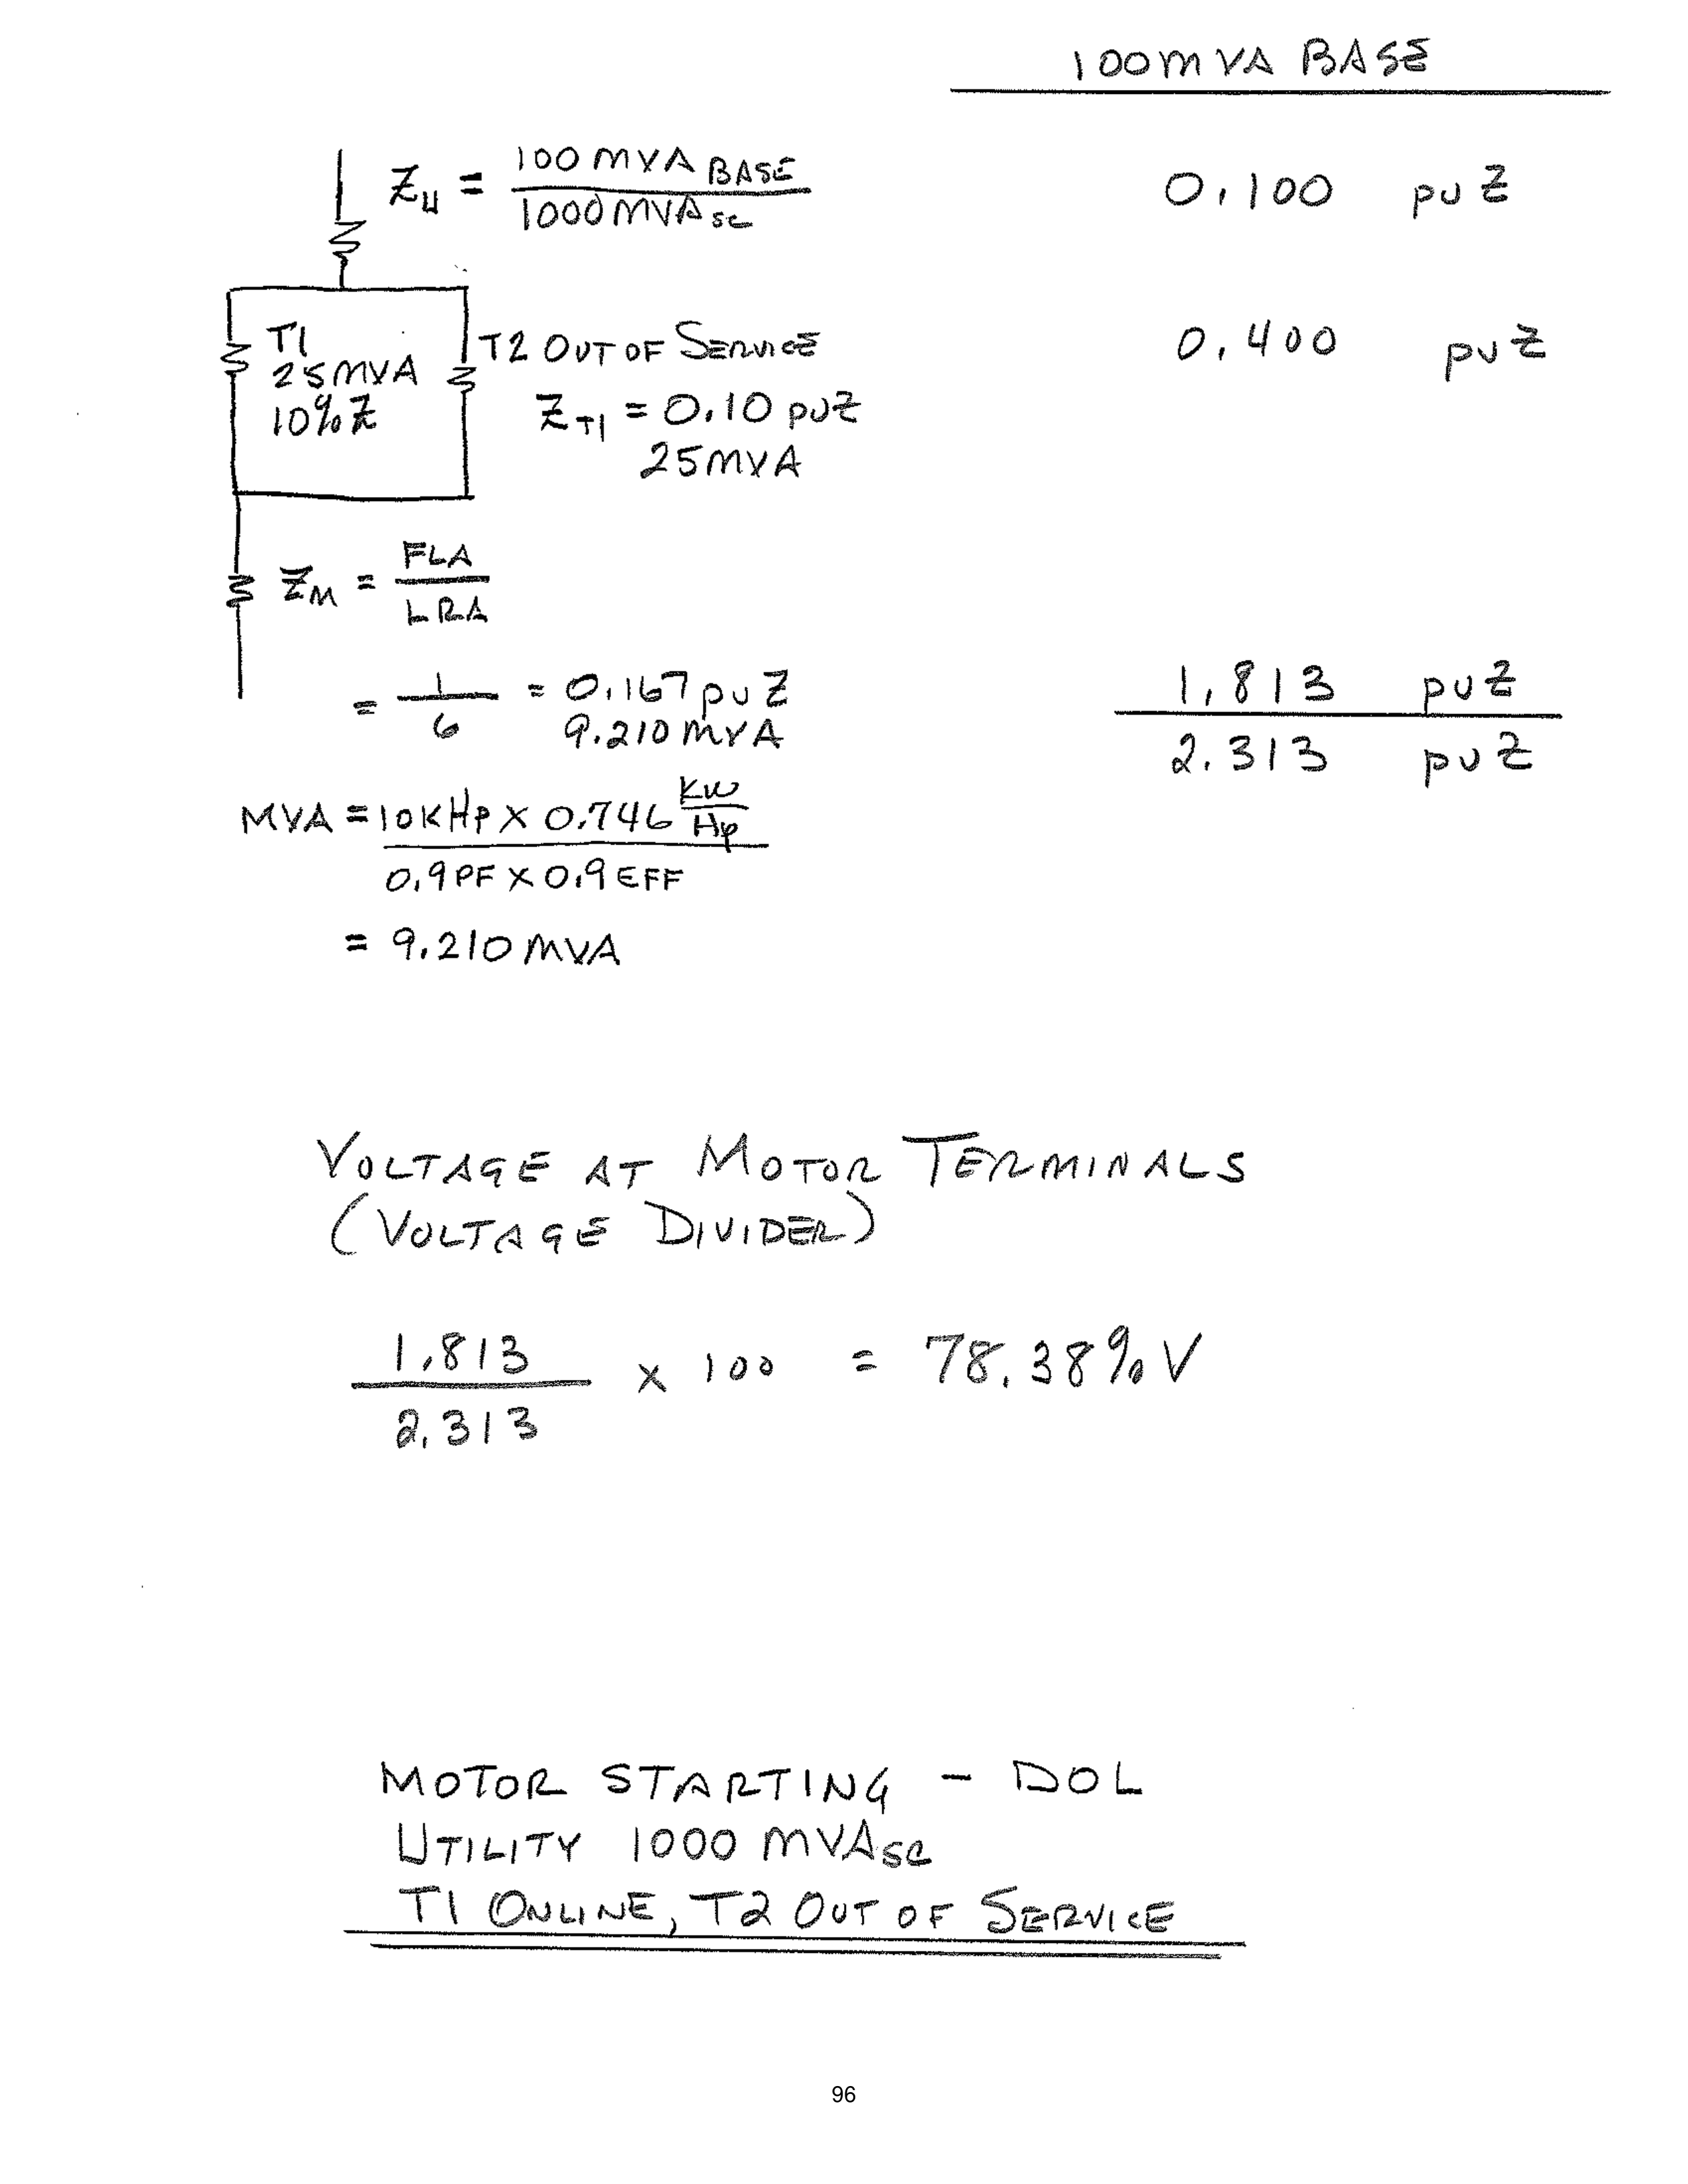 100MVA BASE
ZU = 100 MVA BASE / 1000 MVA SC 0.100 puZ
T1
25MVA
10%Z
T2 OUT OF SERVICE 0.400 puZ
ZT1 = 0.10 puZ
25MVA
ZM = FLA / LRA
= 1 / 6 = 0.167 puZ 1.813 puZ
9.210 MVA 2.313 puZ
MVA = 10KHP X 0.746 KW/HP
0.9 PF X 0.9 EFF
= 9.210 MVA
VOLTAGE AT MOTOR TERMINALS
(VOLTAGE DIVIDER)
1.813 / 2.313 X 100 = 78.38% V
MOTOR STARTING - DOL
UTILITY 1000 MVASC
T1 ONLINE, T2 OUT OF SERVICE
96